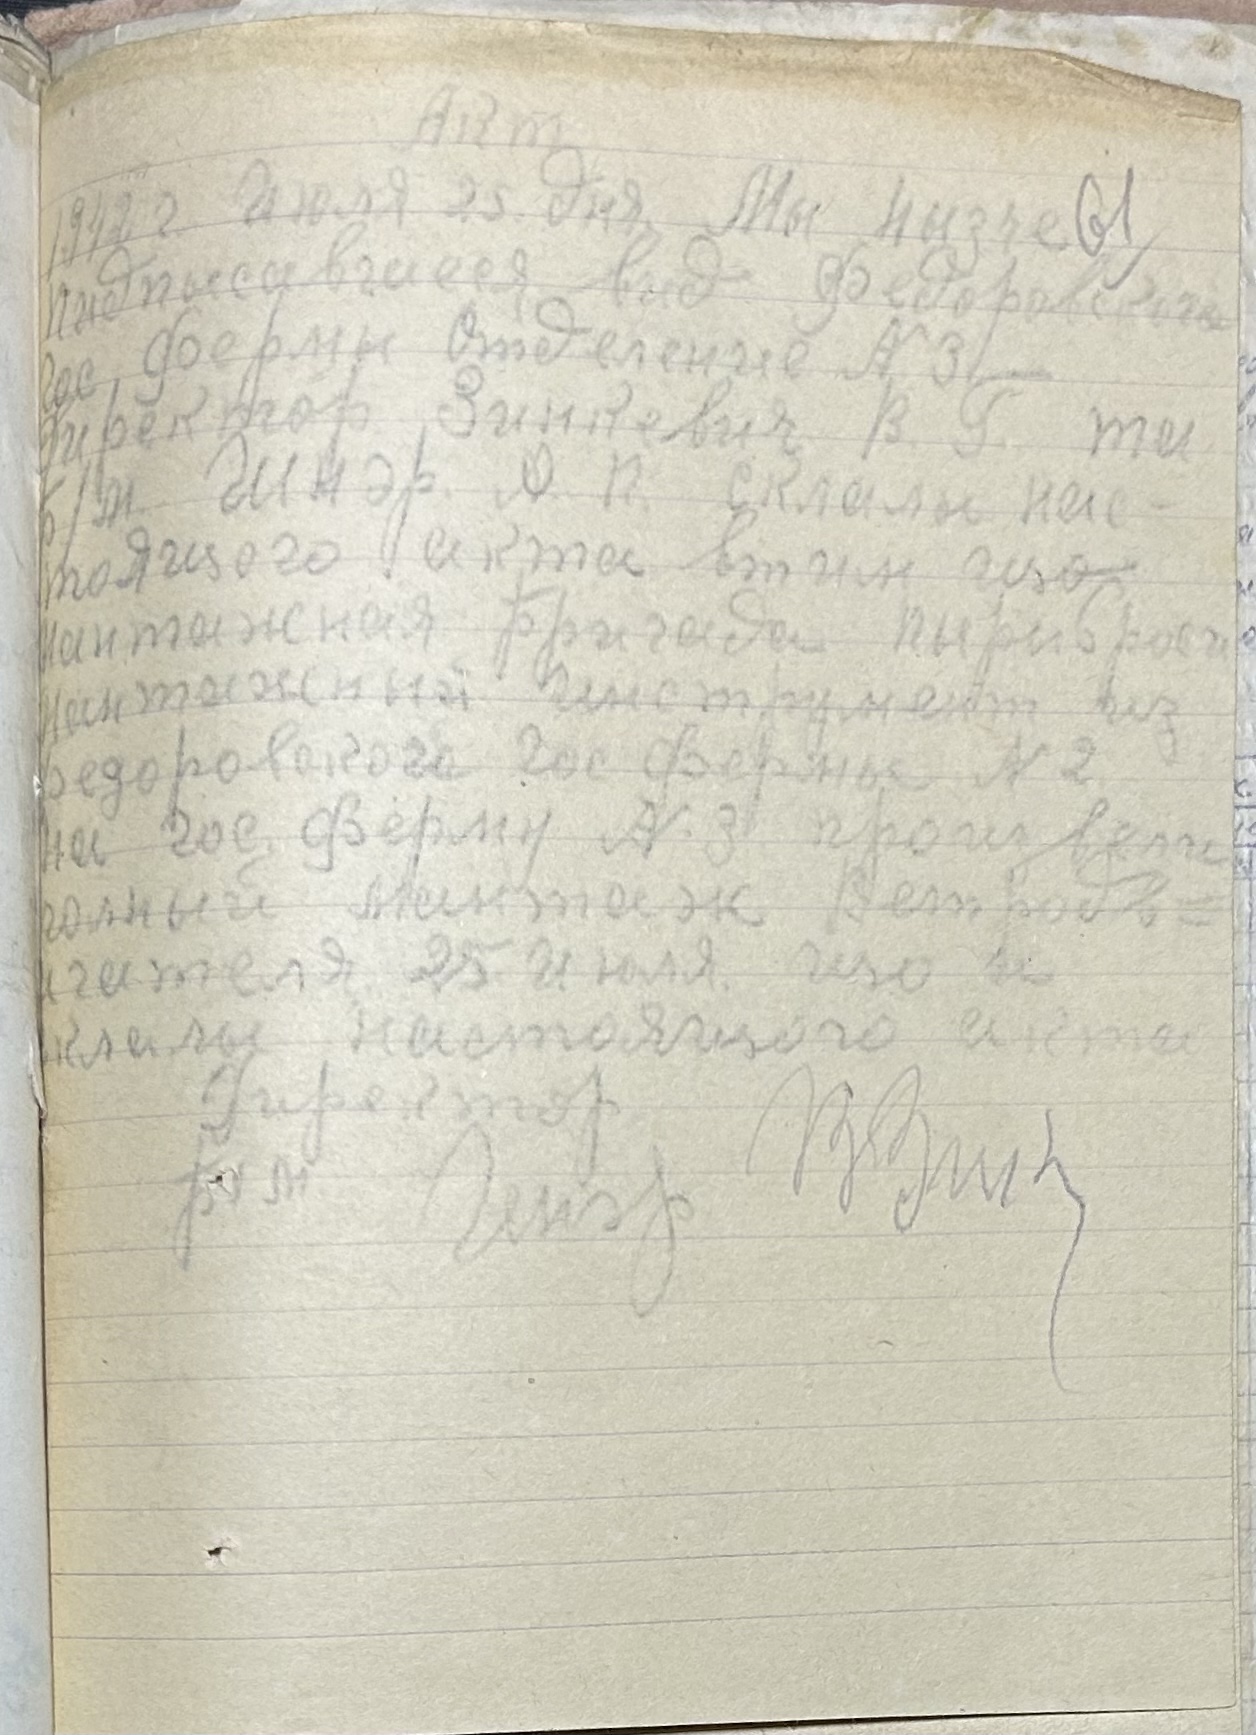 Акт
1942 г. Июля 25. дня Мы низче
61
Пидписавчиеся вид Федоровского
Гос, фермы Отделение N 3
директор Зинкевич В. Г. та
б/м. Гинэр. А. П. склалы нас-
тоящого акта втим що
мантажная Бригада пырибросы
мантажный инструмент из
Федоровского гос фермы N 2
на гос. ферму N. 3 произвели
полный Мантаж Ветродв=
игателя 25 июля що и
склалы настоящого акта
Директор